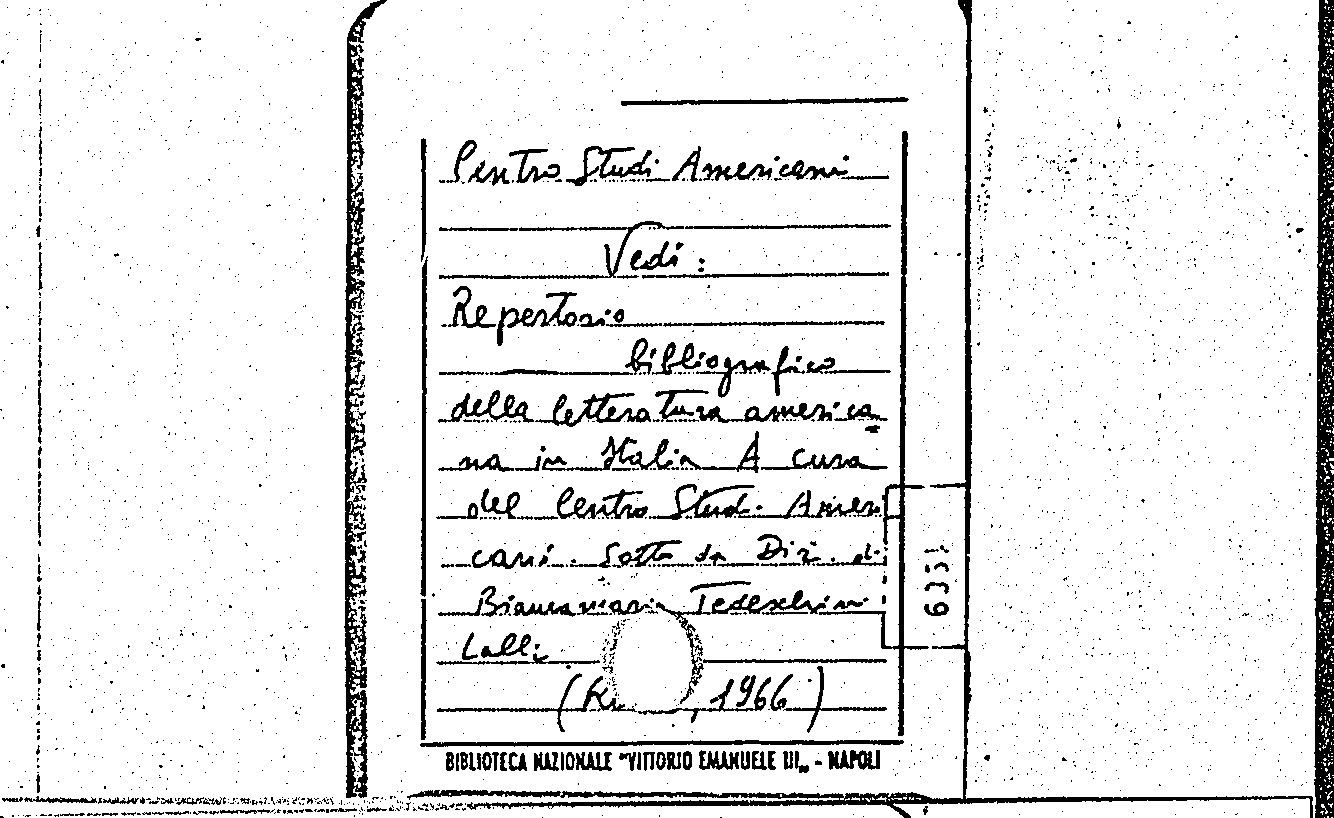 Centro Studi Americani
Vedi:
Repertorio
bibliografico
della letteratura america
na in Italia A cura
del Centro Stud. Ameri
cani. Sotto la Dir. di
Biancamaria Tedeschini
Lalli
(R , 1966)
BIBLIOTECA NAZIONALE "VITTORIO EMANUELE III„ - NAPOLI